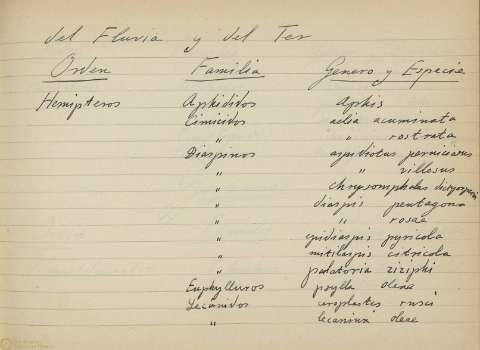 del Fluvia y del Ter
Orden Familia Genero y Especie
Hemipteros Aphididos Aphis
Cimicidos aelia acuminata
" " rostrata
Diaspinos aspidiotus perniciosus
" " villosus
" chrysomphalus dictyospermi
" diaspis pentagona
" " rosae
" epidiaspis pyricola
" mitilaspis citricola
" parlatoria ziziphi
Euphylluros psylla oleae
Lecanidos ceroplastes rusci
" lecanium oleae